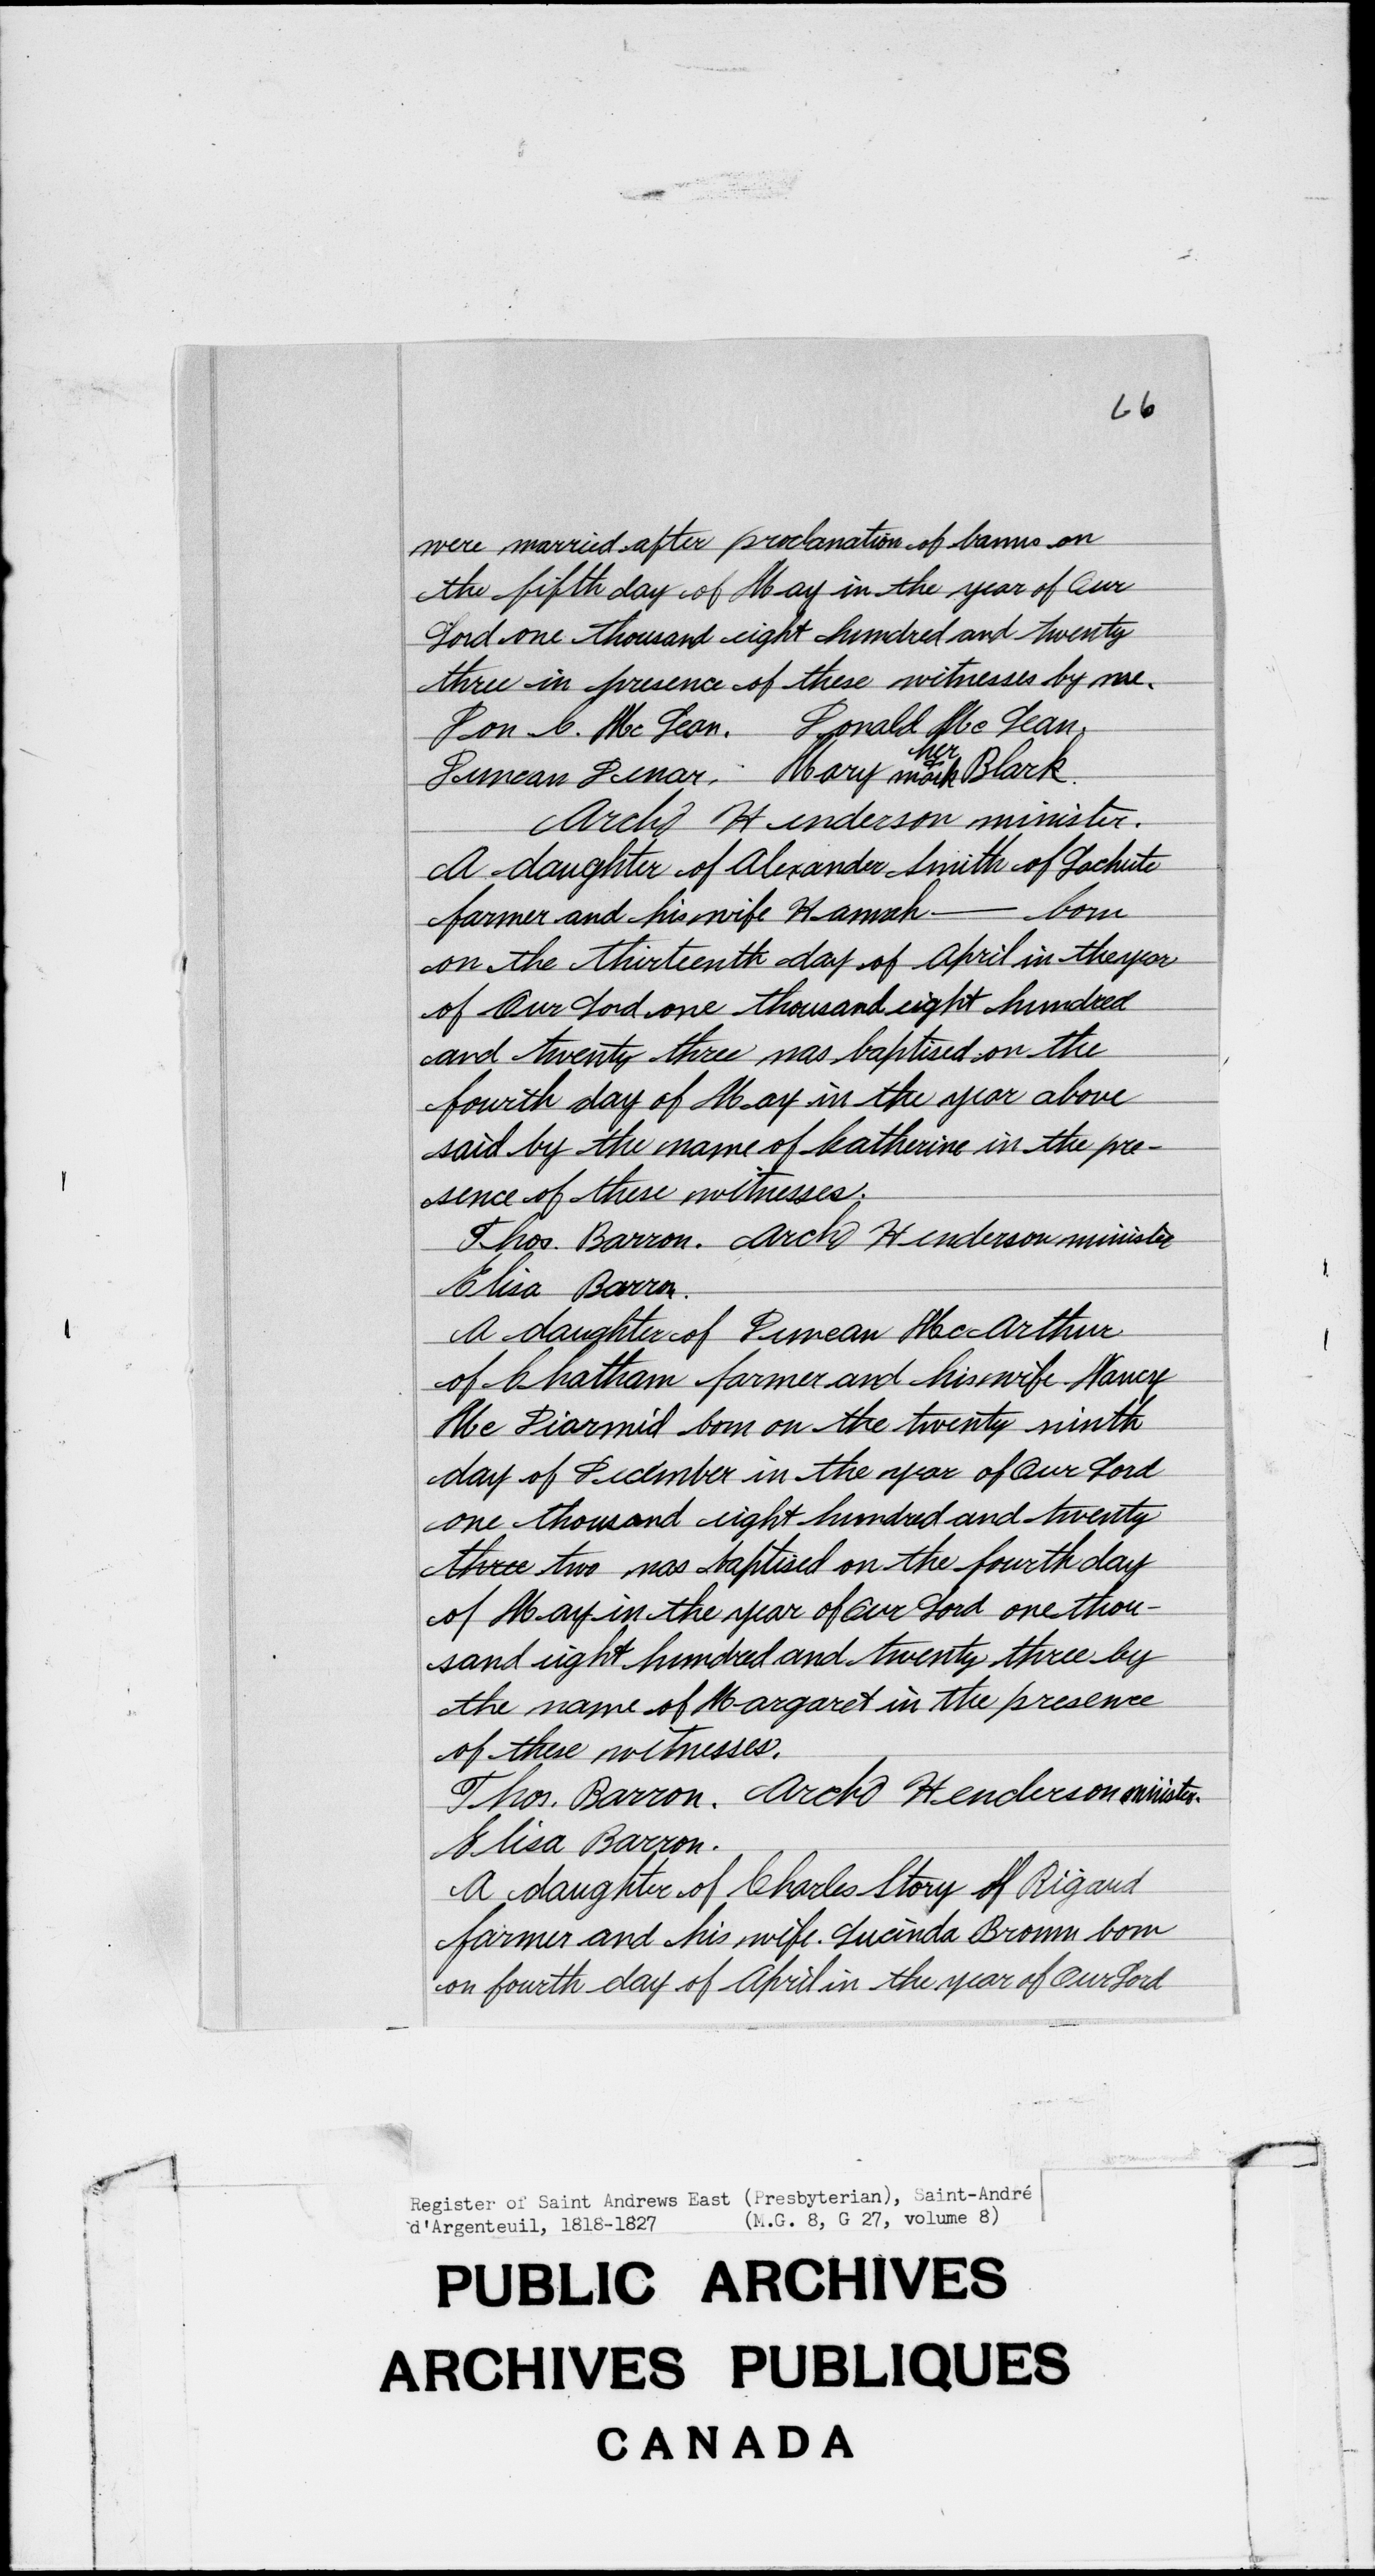 66
were married after proclanation of banns on
the fifth day of May in the year of Our
Lord one thousand eight hundred and twenty
three in presence of these witnesses by me.
Don C. Mc Lean. Donald Mc Lean.
her
Duncan Denar. Mary mark Black.
Archd Henderson minister.
A daughter of Alexander Smith of Lachute
farmer and his wife Hannah — born
on the thirteenth day of April in the year
of Our Lord one thousand eight hundred
and twenty three was baptised on the
fourth day of May in the year above
said by the name of Catherine in the pre-
sence of these witnesses.
Thos. Barron. Archd Henderson minister
Elisa Barron.
A daughter of Duncan McArthur
of Chatham farmer and his wife Nancy
Mc Diarmid born on the twenty ninth
day of December in the year of Our Lord
one thousand eight hundred and twenty
three two was baptised on the fourth day
of May in the year of Our Lord one thou-
sand eight hundred and twenty three by
the name of Margaret in the presence
of these witnesses.
Thos. Barron. Archd Henderson minister.
Elisa Barron.
A daughter of Charles Story of Rigaud
farmer and his wife Lucinda Brown born
on fourth day of April in the year of Our Lord
Register of Saint Andrews East (Presbyterian), Saint-André
d'Argenteuil, 1818-1827 (M.G. 8, G 27, volume 8)
PUBLIC ARCHIVES
ARCHIVES PUBLIQUES
CANADA